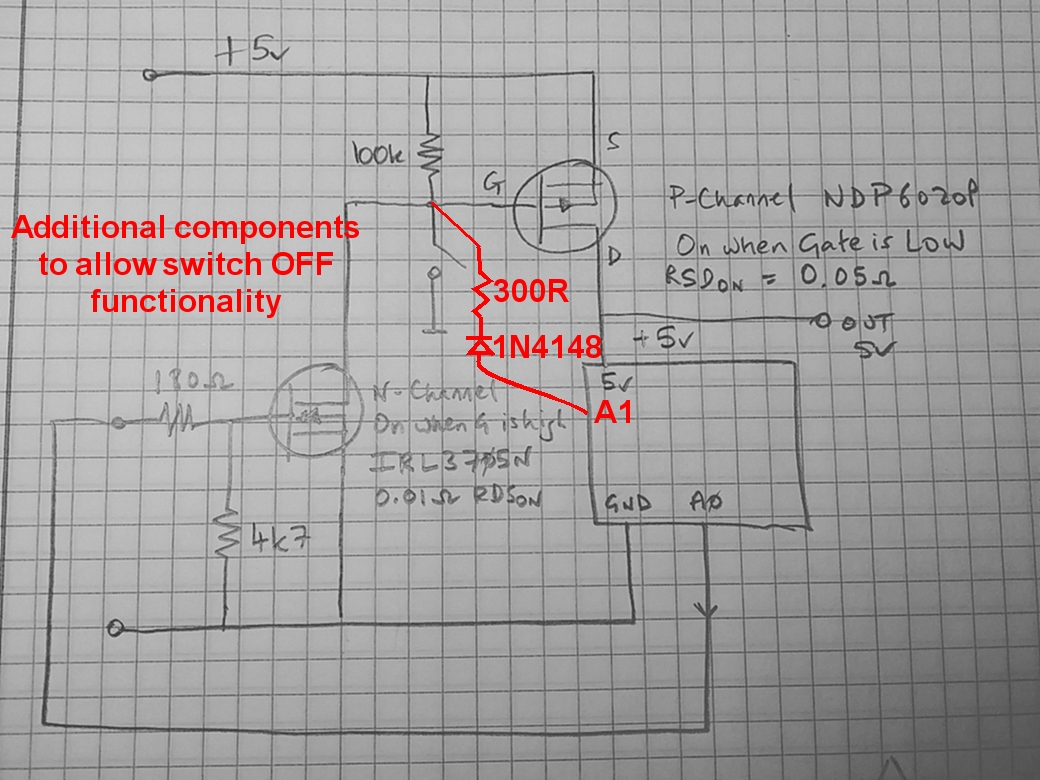 +5v
100k
G
S
D
P-Channel NDP6020P
On when Gate is Low
RSDON = 0.05Ω
Additional components
to allow switch OFF
functionality
300R
1N4148
+5v
OUT
5V
5v
A1
180Ω
N-Channel
On when G is high
IRL3705N
0.01Ω RDSON
4k7
GND
A0